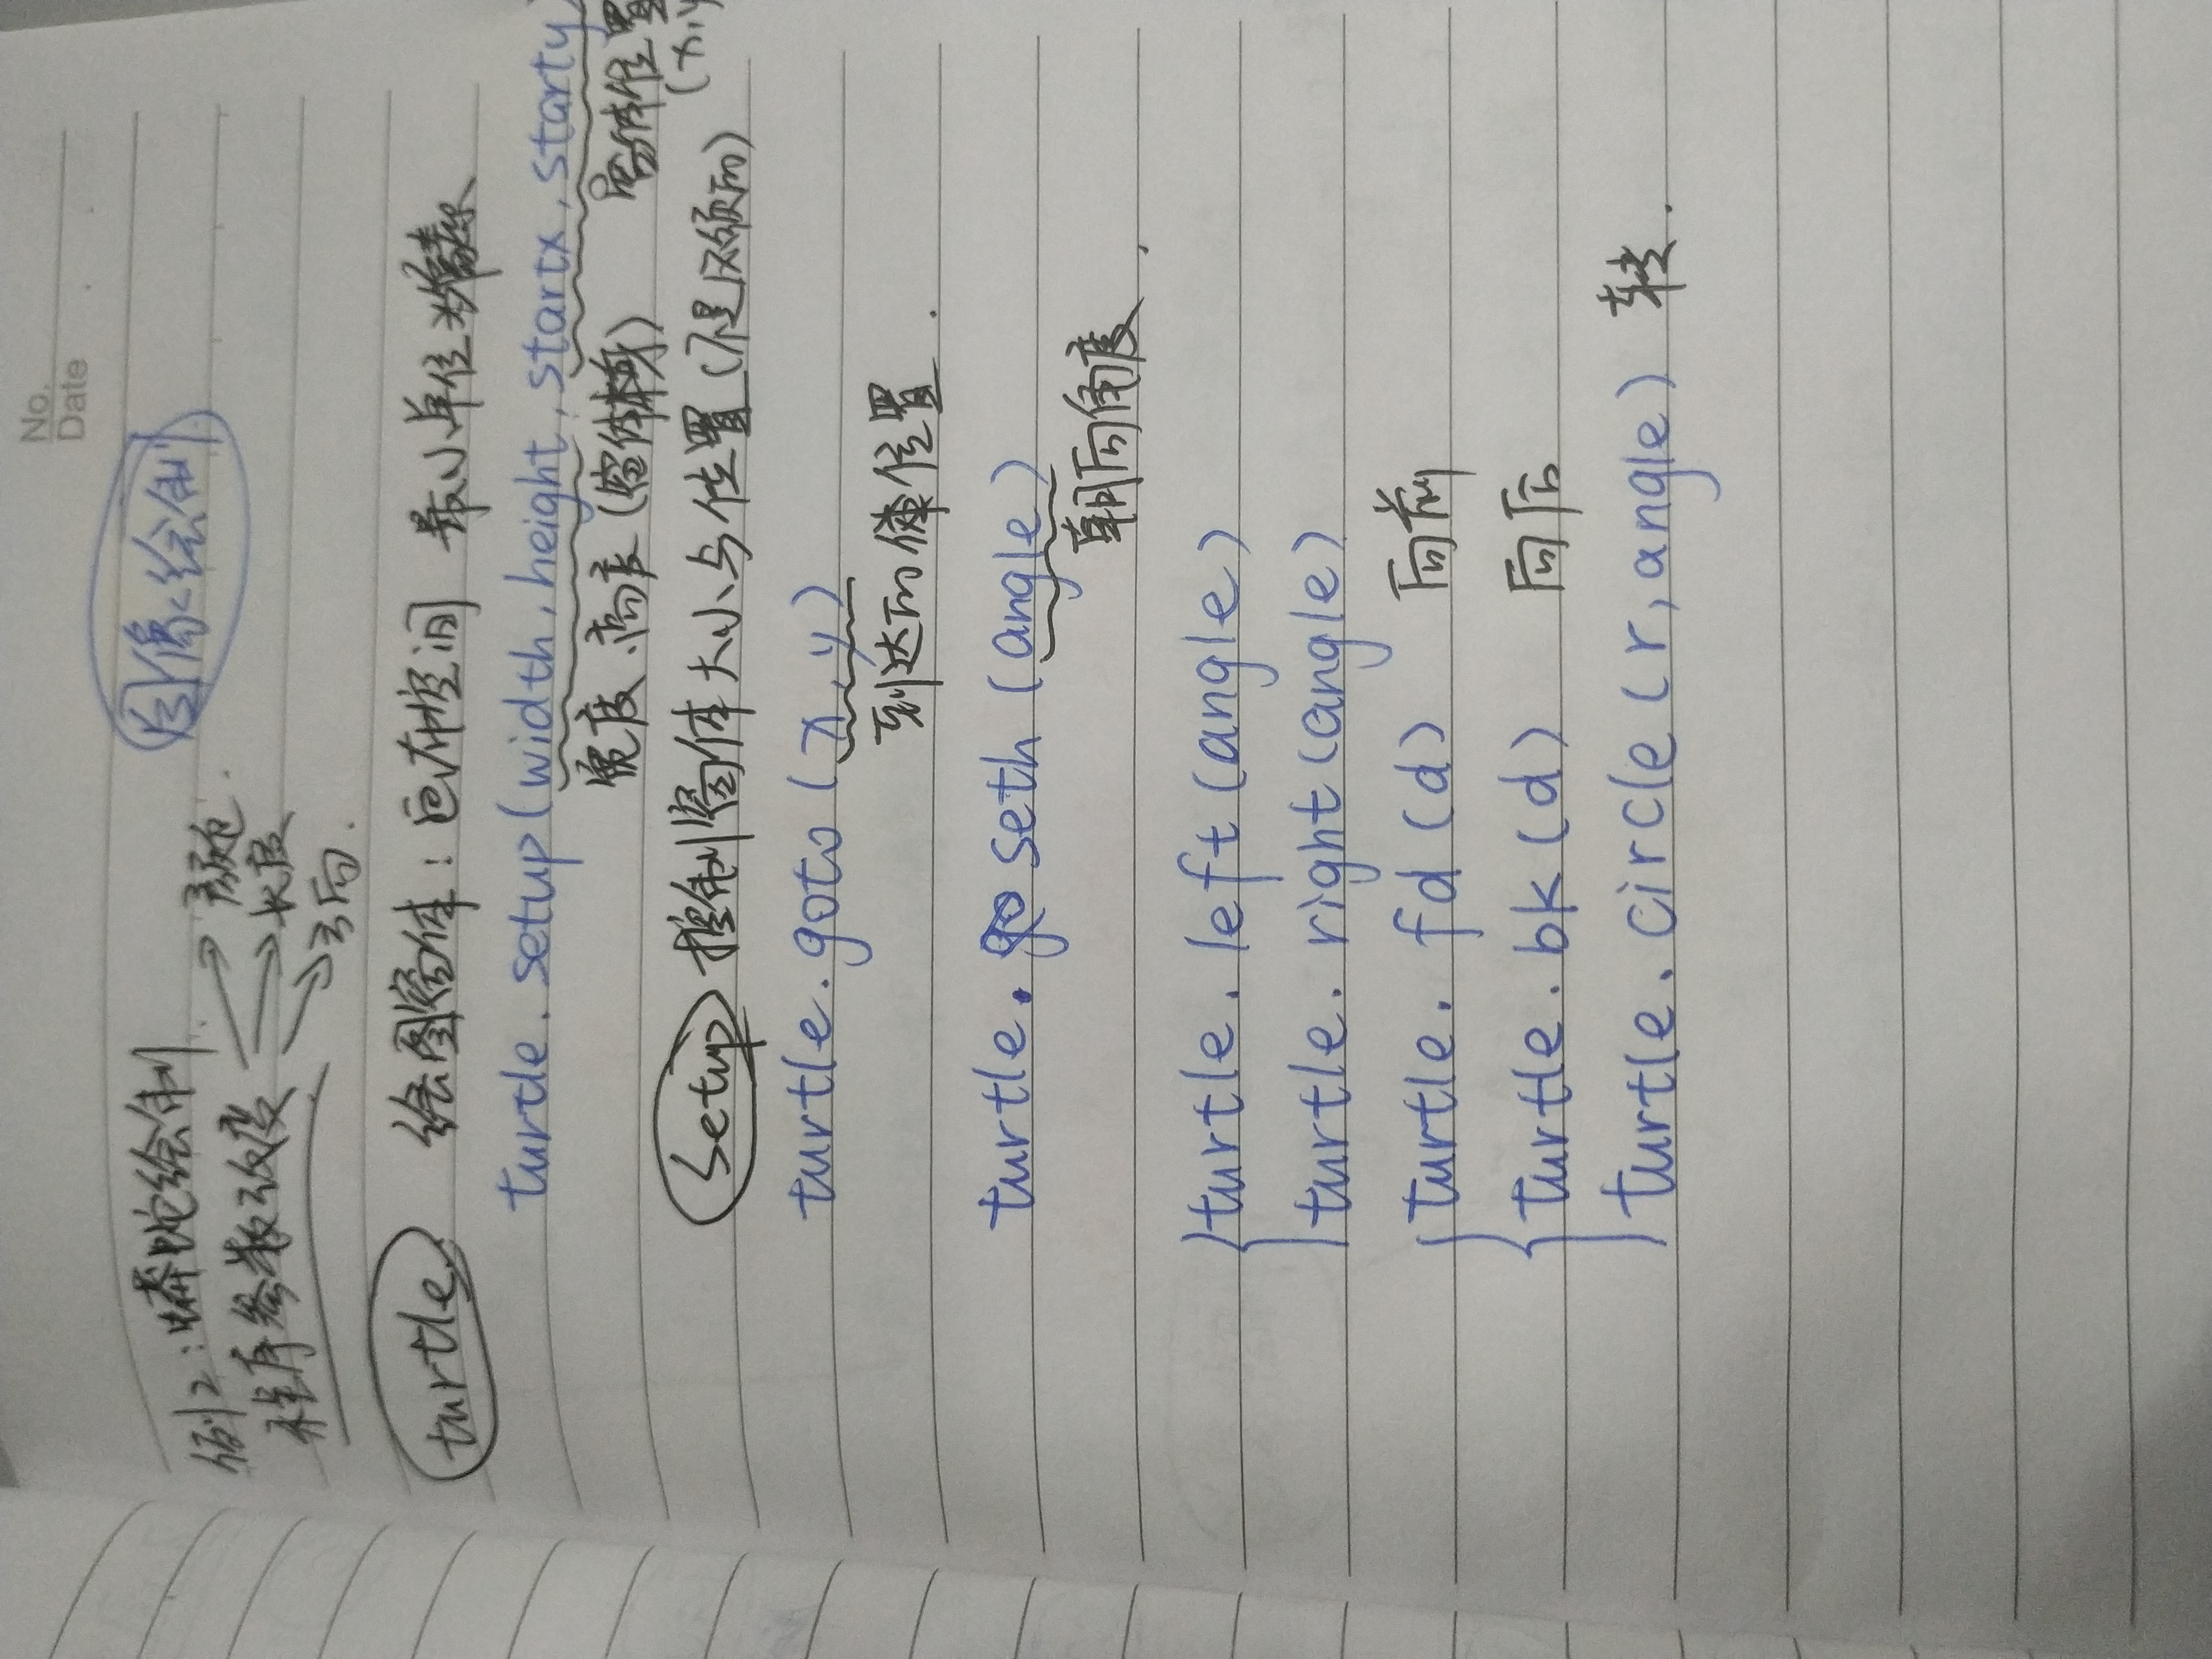 No.
Date
图像绘制
例2：蟒蛇绘制
程序参数改变 → 颜色
→ 长度
→ 方向
turtle 绘图窗体：画布空间 最小单位为像素
turtle.setup(width,height,startx,starty)
宽度、高度(窗体本身) 窗体位置
(x,y
Setup 控制窗体大小与位置(不是必须的)
turtle.goto(x,y)
到达的 位置
turtle. seth(angle)
朝向角度
turtle.left(angle)
turtle.right(angle)
turtle.fd(d) 向前
turtle.bk(d) 向后
turtle.circle(r,angle) 转